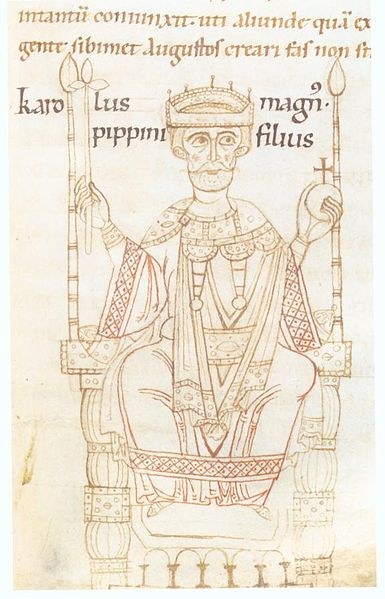 intantū coniunxit. uti aliunde quā ex
gente sibimet Augustos creari fas non
karo lus magn᷒.
pippini filius